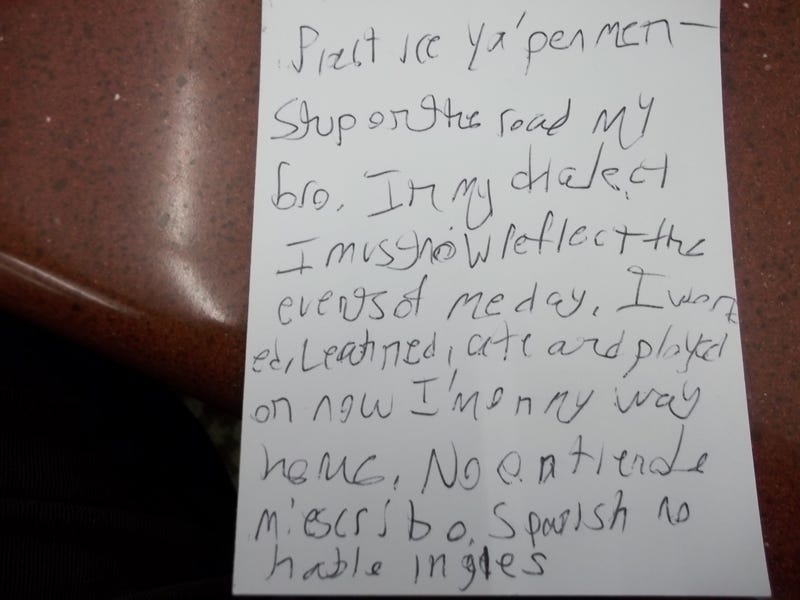 Pract ice ya' penmen-
Ship on the road my
bro. In my dialect
I must now reflect the
events of me day. I work
ed, Learned, ate and played
on now I'm on my way
home. No entiende
mi escribo. Spanish no
hable ingles